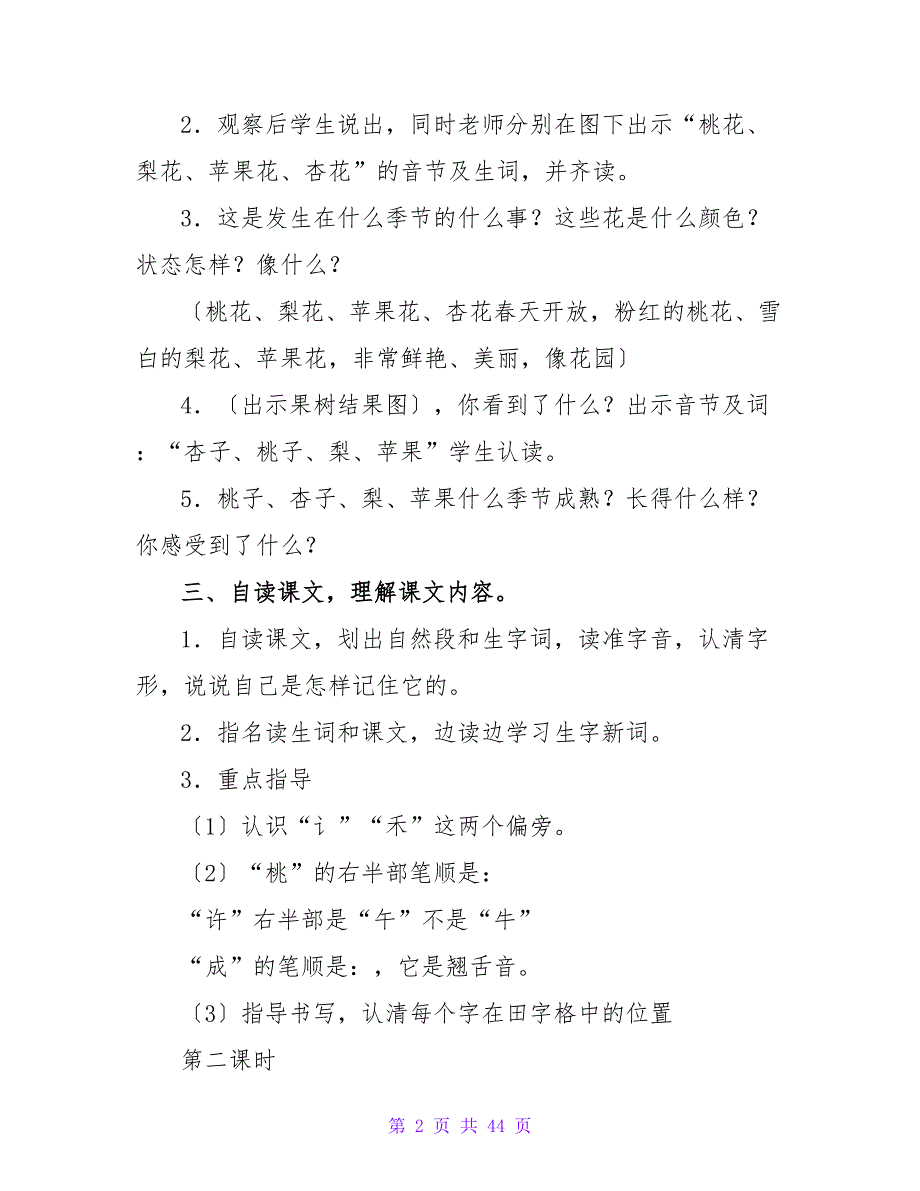 2．观察后学生说出，同时老师分别在图下出示“桃花、
梨花、苹果花、杏花”的音节及生词，并齐读。
3．这是发生在什么季节的什么事？这些花是什么颜色？
状态怎样？像什么？
〔桃花、梨花、苹果花、杏花春天开放，粉红的桃花、雪
白的梨花、苹果花，非常鲜艳、美丽，像花园〕
4．〔出示果树结果图〕，你看到了什么？出示音节及词
：“杏子、桃子、梨、苹果”学生认读。
5．桃子、杏子、梨、苹果什么季节成熟？长得什么样？
你感受到了什么？
三、自读课文，理解课文内容。
1．自读课文，划出自然段和生字词，读准字音，认清字
形，说说自己是怎样记住它的。
2．指名读生词和课文，边读边学习生字新词。
3．重点指导
〔1〕认识“讠”“禾”这两个偏旁。
〔2〕“桃”的右半部笔顺是：
“许”右半部是“午”不是“牛”
“成”的笔顺是：，它是翘舌音。
〔3〕指导书写，认清每个字在田字格中的位置
第二课时
第 2 页 共 44 页